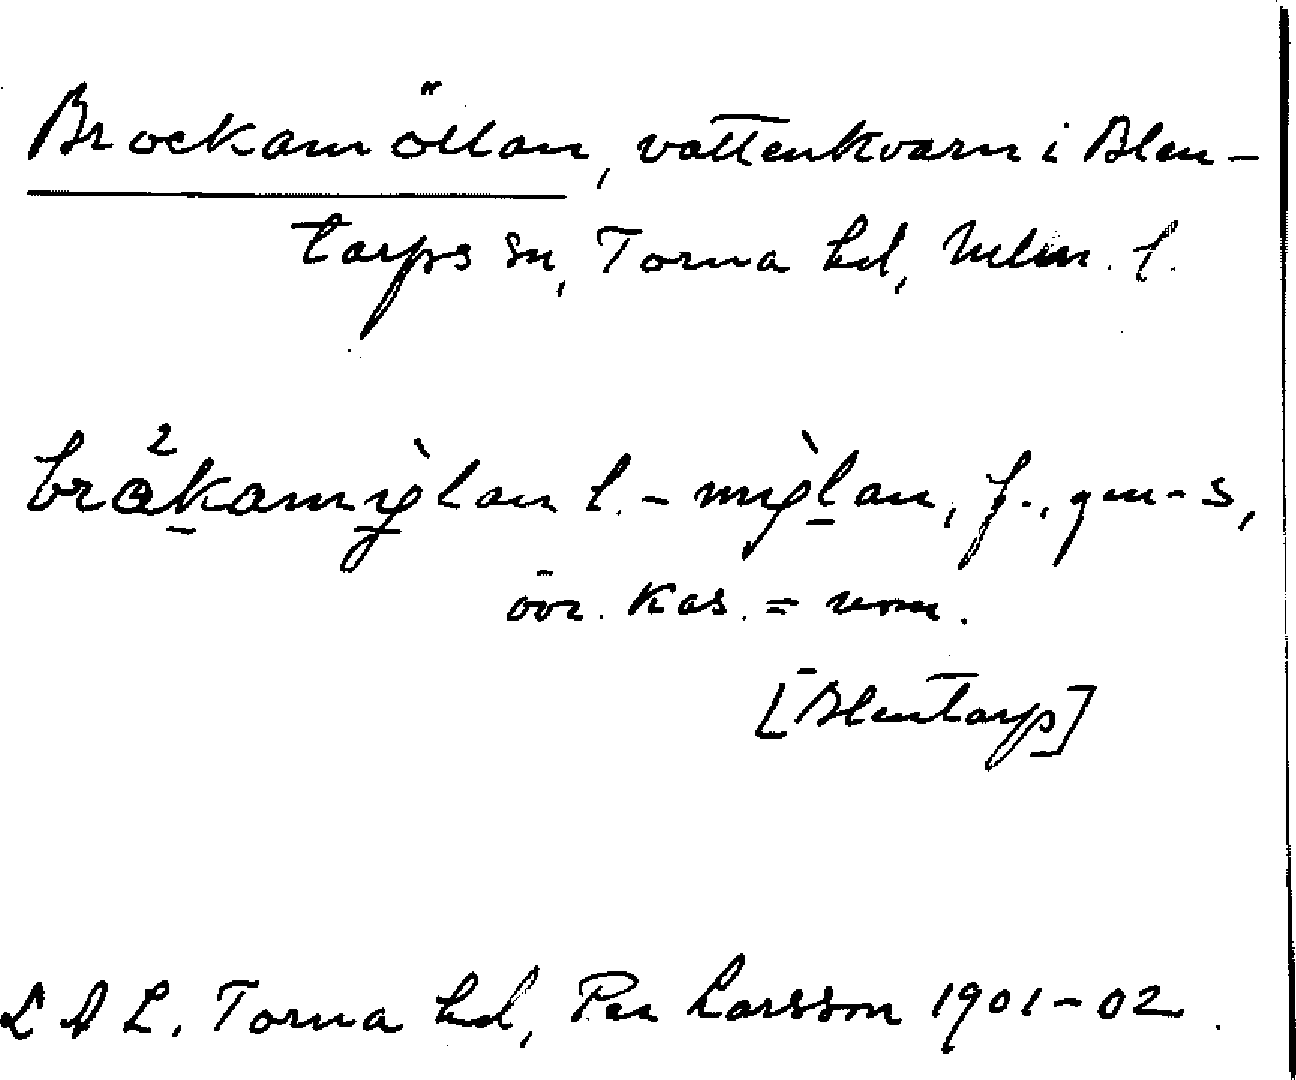 Brockamöllan, vattenkvarn i Blen-
tarps sn, Torna hd, Mlm. l.
brå²kamỳlan l. - mỳlan, f., gen -s,
övr. kas. = nom.
[Blentarp]
LAL, Torna hd, Per Larsson 1901-02.